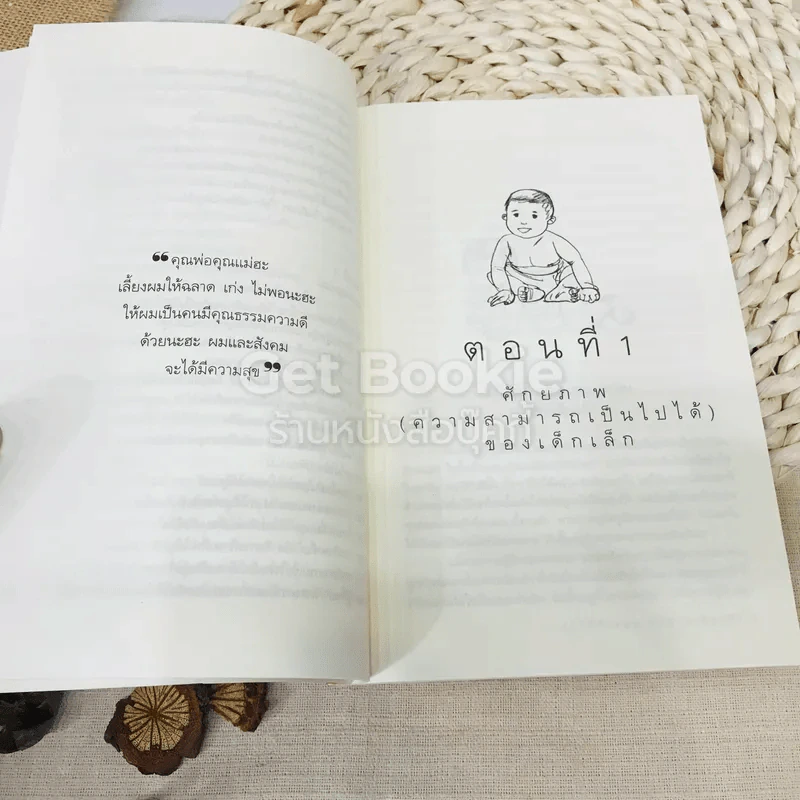 ❝คุณพ่อคุณแม่ฮะ
เลี้ยงผมให้ฉลาด เก่ง ไม่พอนะฮะ
ให้ผมเป็นคนมีคุณธรรมความดี
ด้วยนะฮะ ผมและสังคม
จะได้มีความสุข❞
ตอนที่ 1
ศักยภาพ
(ความสามารถเป็นไปได้)
ของเด็กเล็ก
Get Bookie
ร้านหนังสือบุ๊คกี้